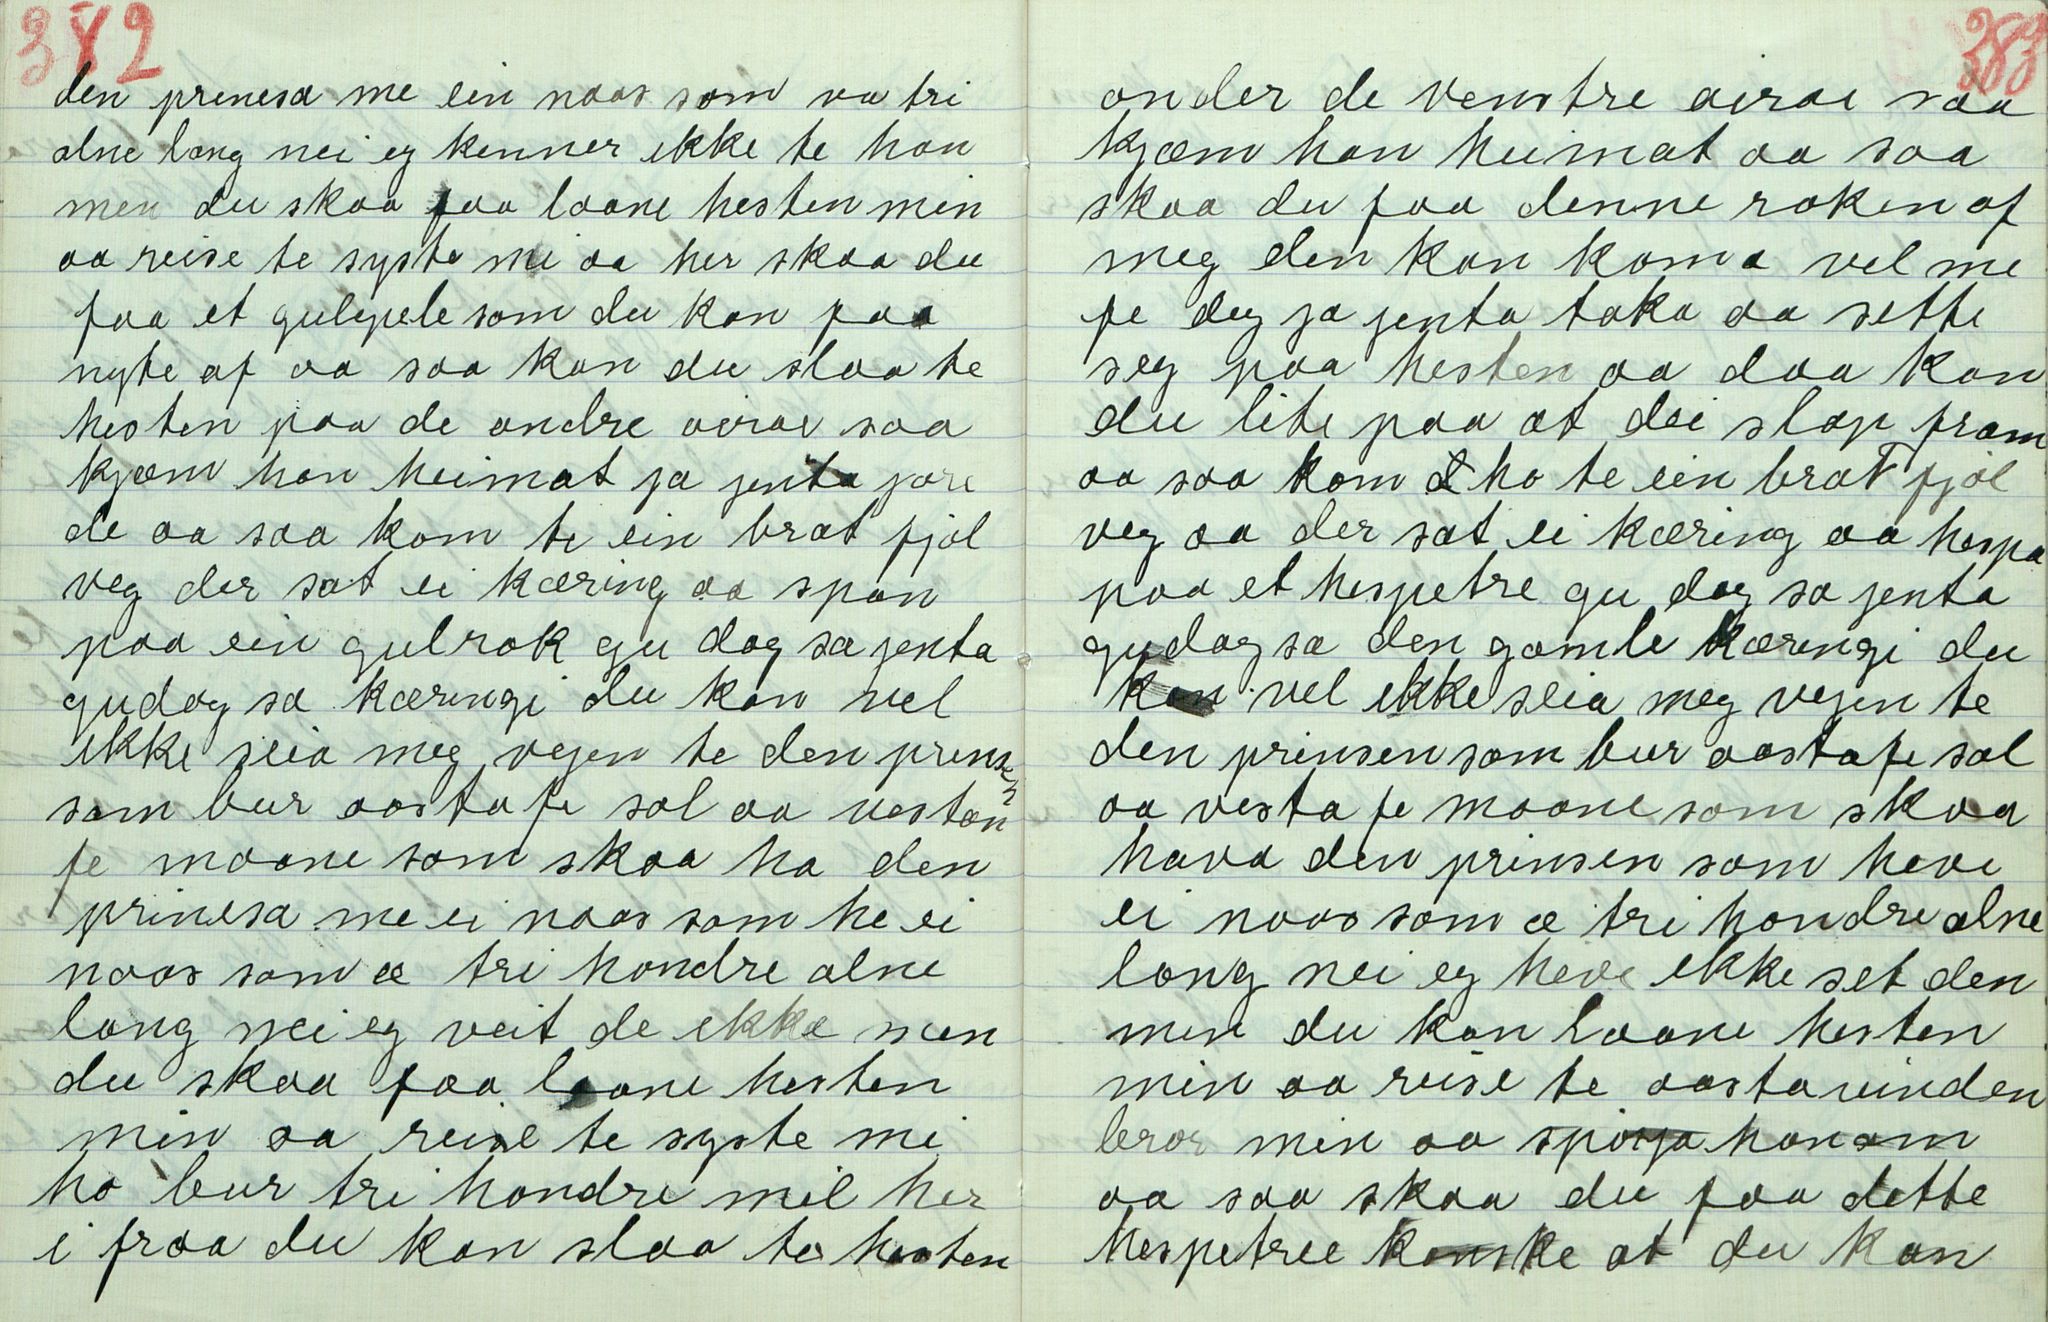 382
den prinesa me ein naas som va tri
alne lang nei eg kenner ikke te han
men du skaa faa laane hesten min
aa reise te syste mi aa her skaa du
faa et gulepele som du kan faa
nyte af aa saa kan du slaa te
hesten paa de andre øirae saa
kjæm han heimat ja jenta jore
de aa saa kom te ein brat fjøl
veg der sat ei kæring aa span
paa ein gulrok gu dag sa jenta
gudag sa kæringi du kan vel
ikke seia meg vejen te den prinsen
som bur aasta fe sol aa vestan
fe maane som skaa ha den
prinesa me ei naas som he ei
naas som æ tri hondre alne
lang nei eg veit de ikke men
du skaa faa laane hesten
min aa reise te syste mi
ho bur tri hondre mil her
i fraa du kan slaa te hesten
383
onder de venstre øirae saa
kjæm han heimat aa saa
skaa du faa denne roken af
meg den kan koma vel me
fe deg ja jenta toka aa sette
seg paa hesten aa daa kan
du lite paa at dei slap fram
aa saa kom ho te ein brat fjøl
veg aa der sat ei kæring aa hespa
paa et hespetre gu dag sa jenta
gudag sa den gamle kæringi du
kan vel ikke seia meg vejen te
den prinsen som bur aasta fe sol
aa vesta fe maane som skaa
hava den prinsen som heve
ei naas som æ tri hondre alne
lang nei eg heve ikke set den
men du kan laane hesten
min aa reise te aastavinden
bror min aa spørja honom
aa saa skaa du faa dette
hespetree kanske at du kan